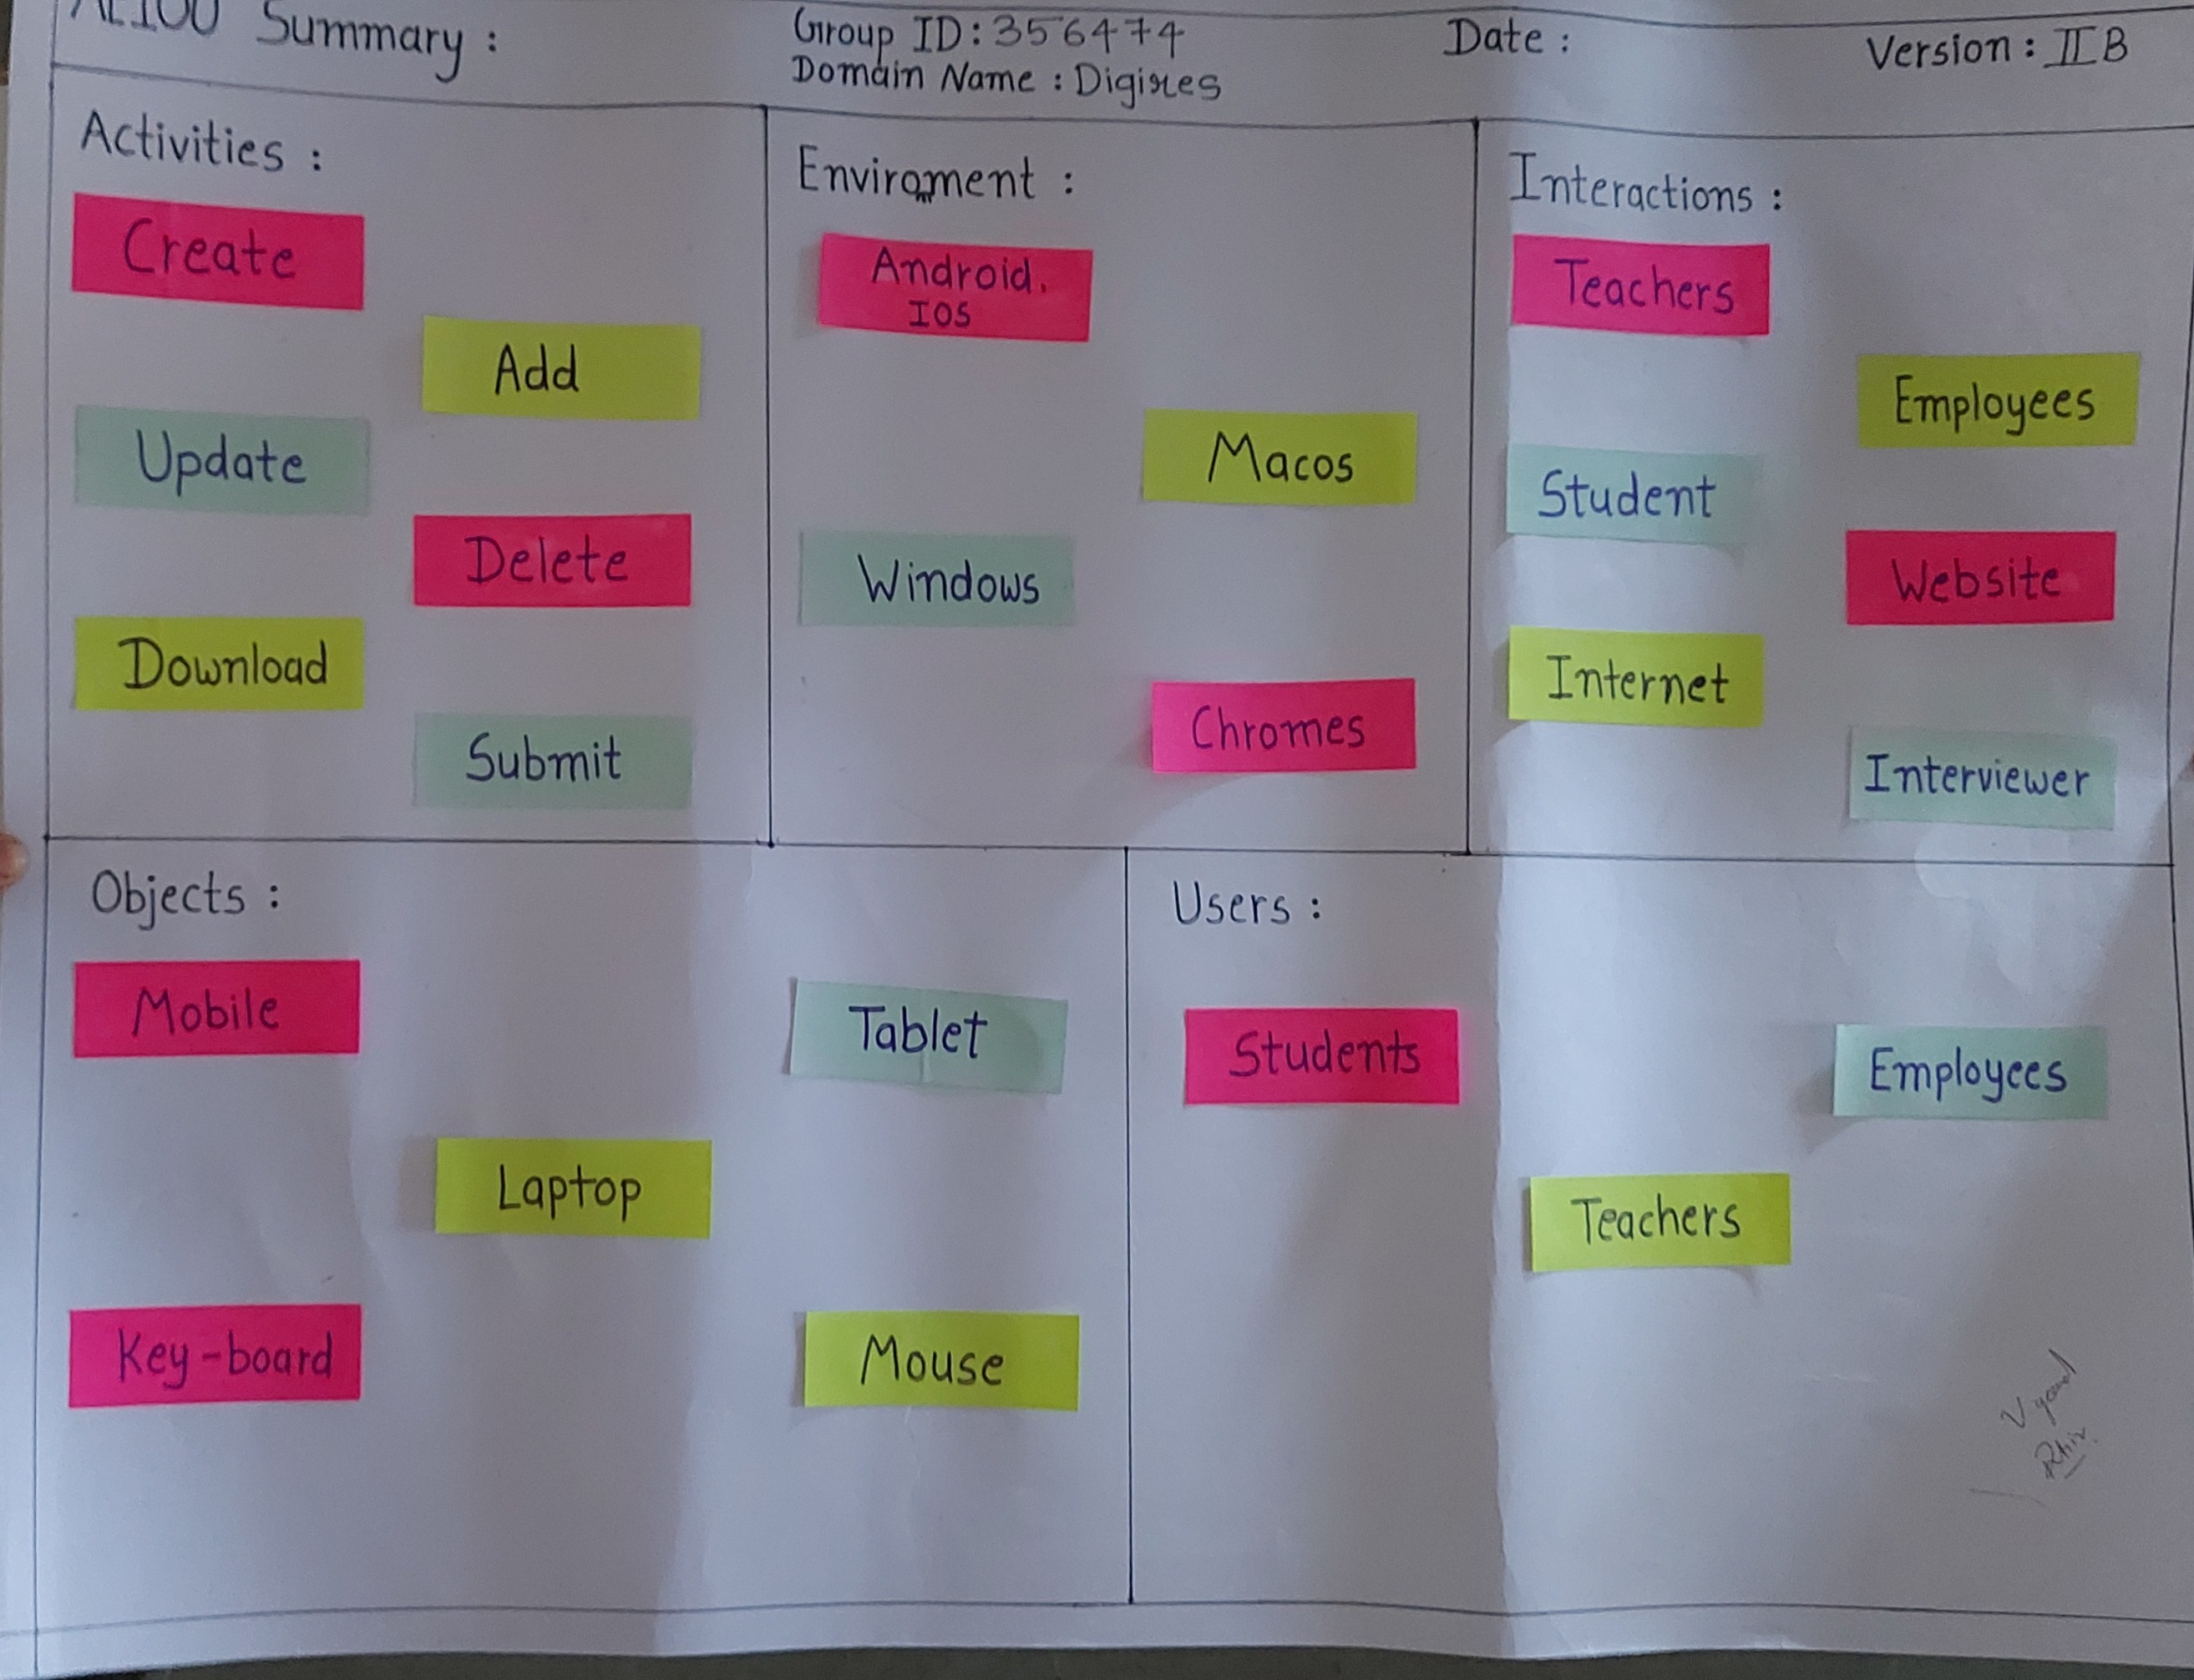 AEIOU Summary :
Group ID: 356474
Domain Name : Digires
Date :
Version : II B
Activities :
Create
Add
Update
Delete
Download
Submit
Enviroment :
Android.
IOS
Macos
Windows
Chromes
Interactions :
Teachers
Employees
Student
Website
Internet
Interviewer
Objects :
Mobile
Tablet
Laptop
Key-board
Mouse
Users :
Students
Employees
Teachers